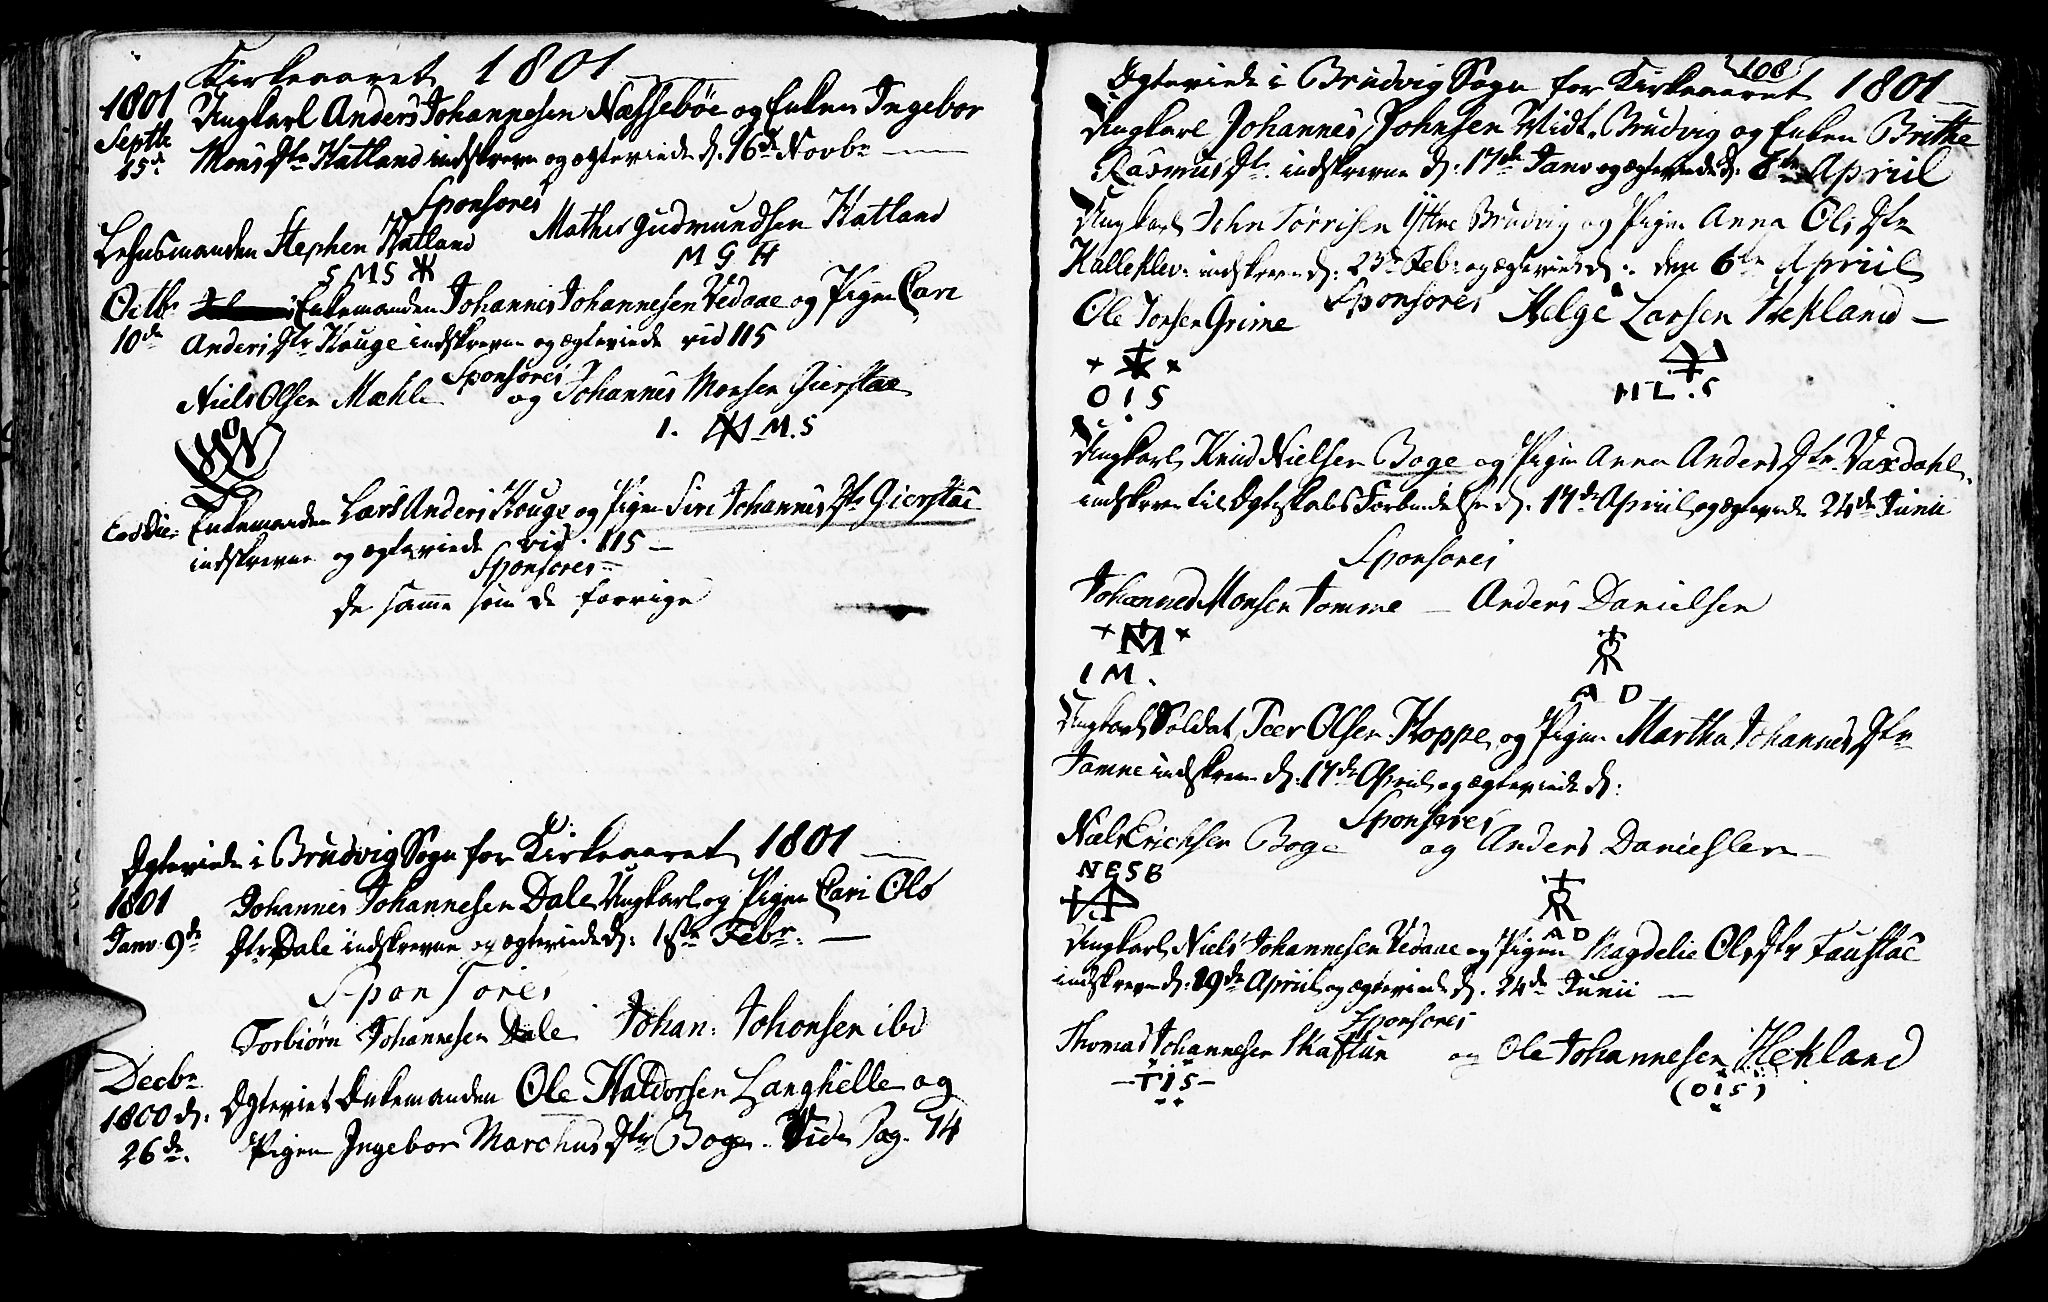 Kirkeaaret 1801
1801 Ungkarl Anders Johannesen Næssebøe og Enken Ingebor
Septbr 15de Mons Dtr Hatland indskrevne og ægteviede d. 16de Novbr
Sponsores
Lehnsmanden Stephen Hatland Mathis Gudmundsen Hatland
S M S M G H
Octbr Enkemanden Johannes Johannesen Vedaae og Pigen Cari
10de Anders Dtr Houge indskrevne og ægteviede vid 115
Sponsores
Niels Olsen Mæhle og Johannes Monsen Gierstae
I. M. S
Eod Die Enkemanden Lars Anders Houge og Pigen Siri Johannes Dtr Gierstae
indskrevne og ægteviede vid. 115
Sponsores
de samme som de forrige
Ægteviede i Brudvig Sogn for Kirkeaaret 1801
1801 Johannes Johannesen Dale Ungkarl og Pigen Cari Ols
Janv. 9de Dtr Dale indskrevne og ægteviede d: Febr.
Sponsores
Torbiørn Johannesen Dale Johan: Johonsen ibd
Decbr
1800 d. Ægteviet Enkemanden Ole Haldorsen Langhelle og
26de. Pigen Ingebor Marchus Dtr Boge. Vide Pag. 74
108
Ægteviede i Brudvig Sogn for Kirkeaaret 1801
Ungkarl Johannes Johnsen Midt-Brudvig og Enken Brithe
Rasmus Dtr. indskrevne d: 17de Janv og ægteviede d: 6te Apriil
Ungkarl John Torrisen Yttre Brudvig og Pigen Anna Ols Dtr
Kalleklev: indskrevne d: 23de Feb: og ægteviede d: den 6te Apriil
Sponsores
Ole Jonsen Grime Helge Larsen Hekland
O I S H L. S
Ungkarl Knud Nielsen Boge og Pigen Anna Anders Dtr Vaxdahl
indskrevne til Ægteskabs Forbindelse d. 17de Apriil og ægteviede 24de Junii
Sponsores
Johannes Monsen Tomme Anders Danielsen
M
I M. A D
Ungkarl Soldat Peer Olsen Hoppe og Pigen Martha Johannes Dtr
Tamne indskrevne d. 17de Apriil og ægteviede d:
Sponsores
Niels Erichsen Boge og Anders Danielsen
N E S B
A D
Ungkarl Niels Johannesen Vedaae og Pigen Magdelie Ols Dtr Faustae
indskrevne d: 19de Apriil og ægteviede d. 24de Junii
Sponsores
Thomas Johannesen Skaftun og Ole Johannesen Hekland
T I S (O I S)